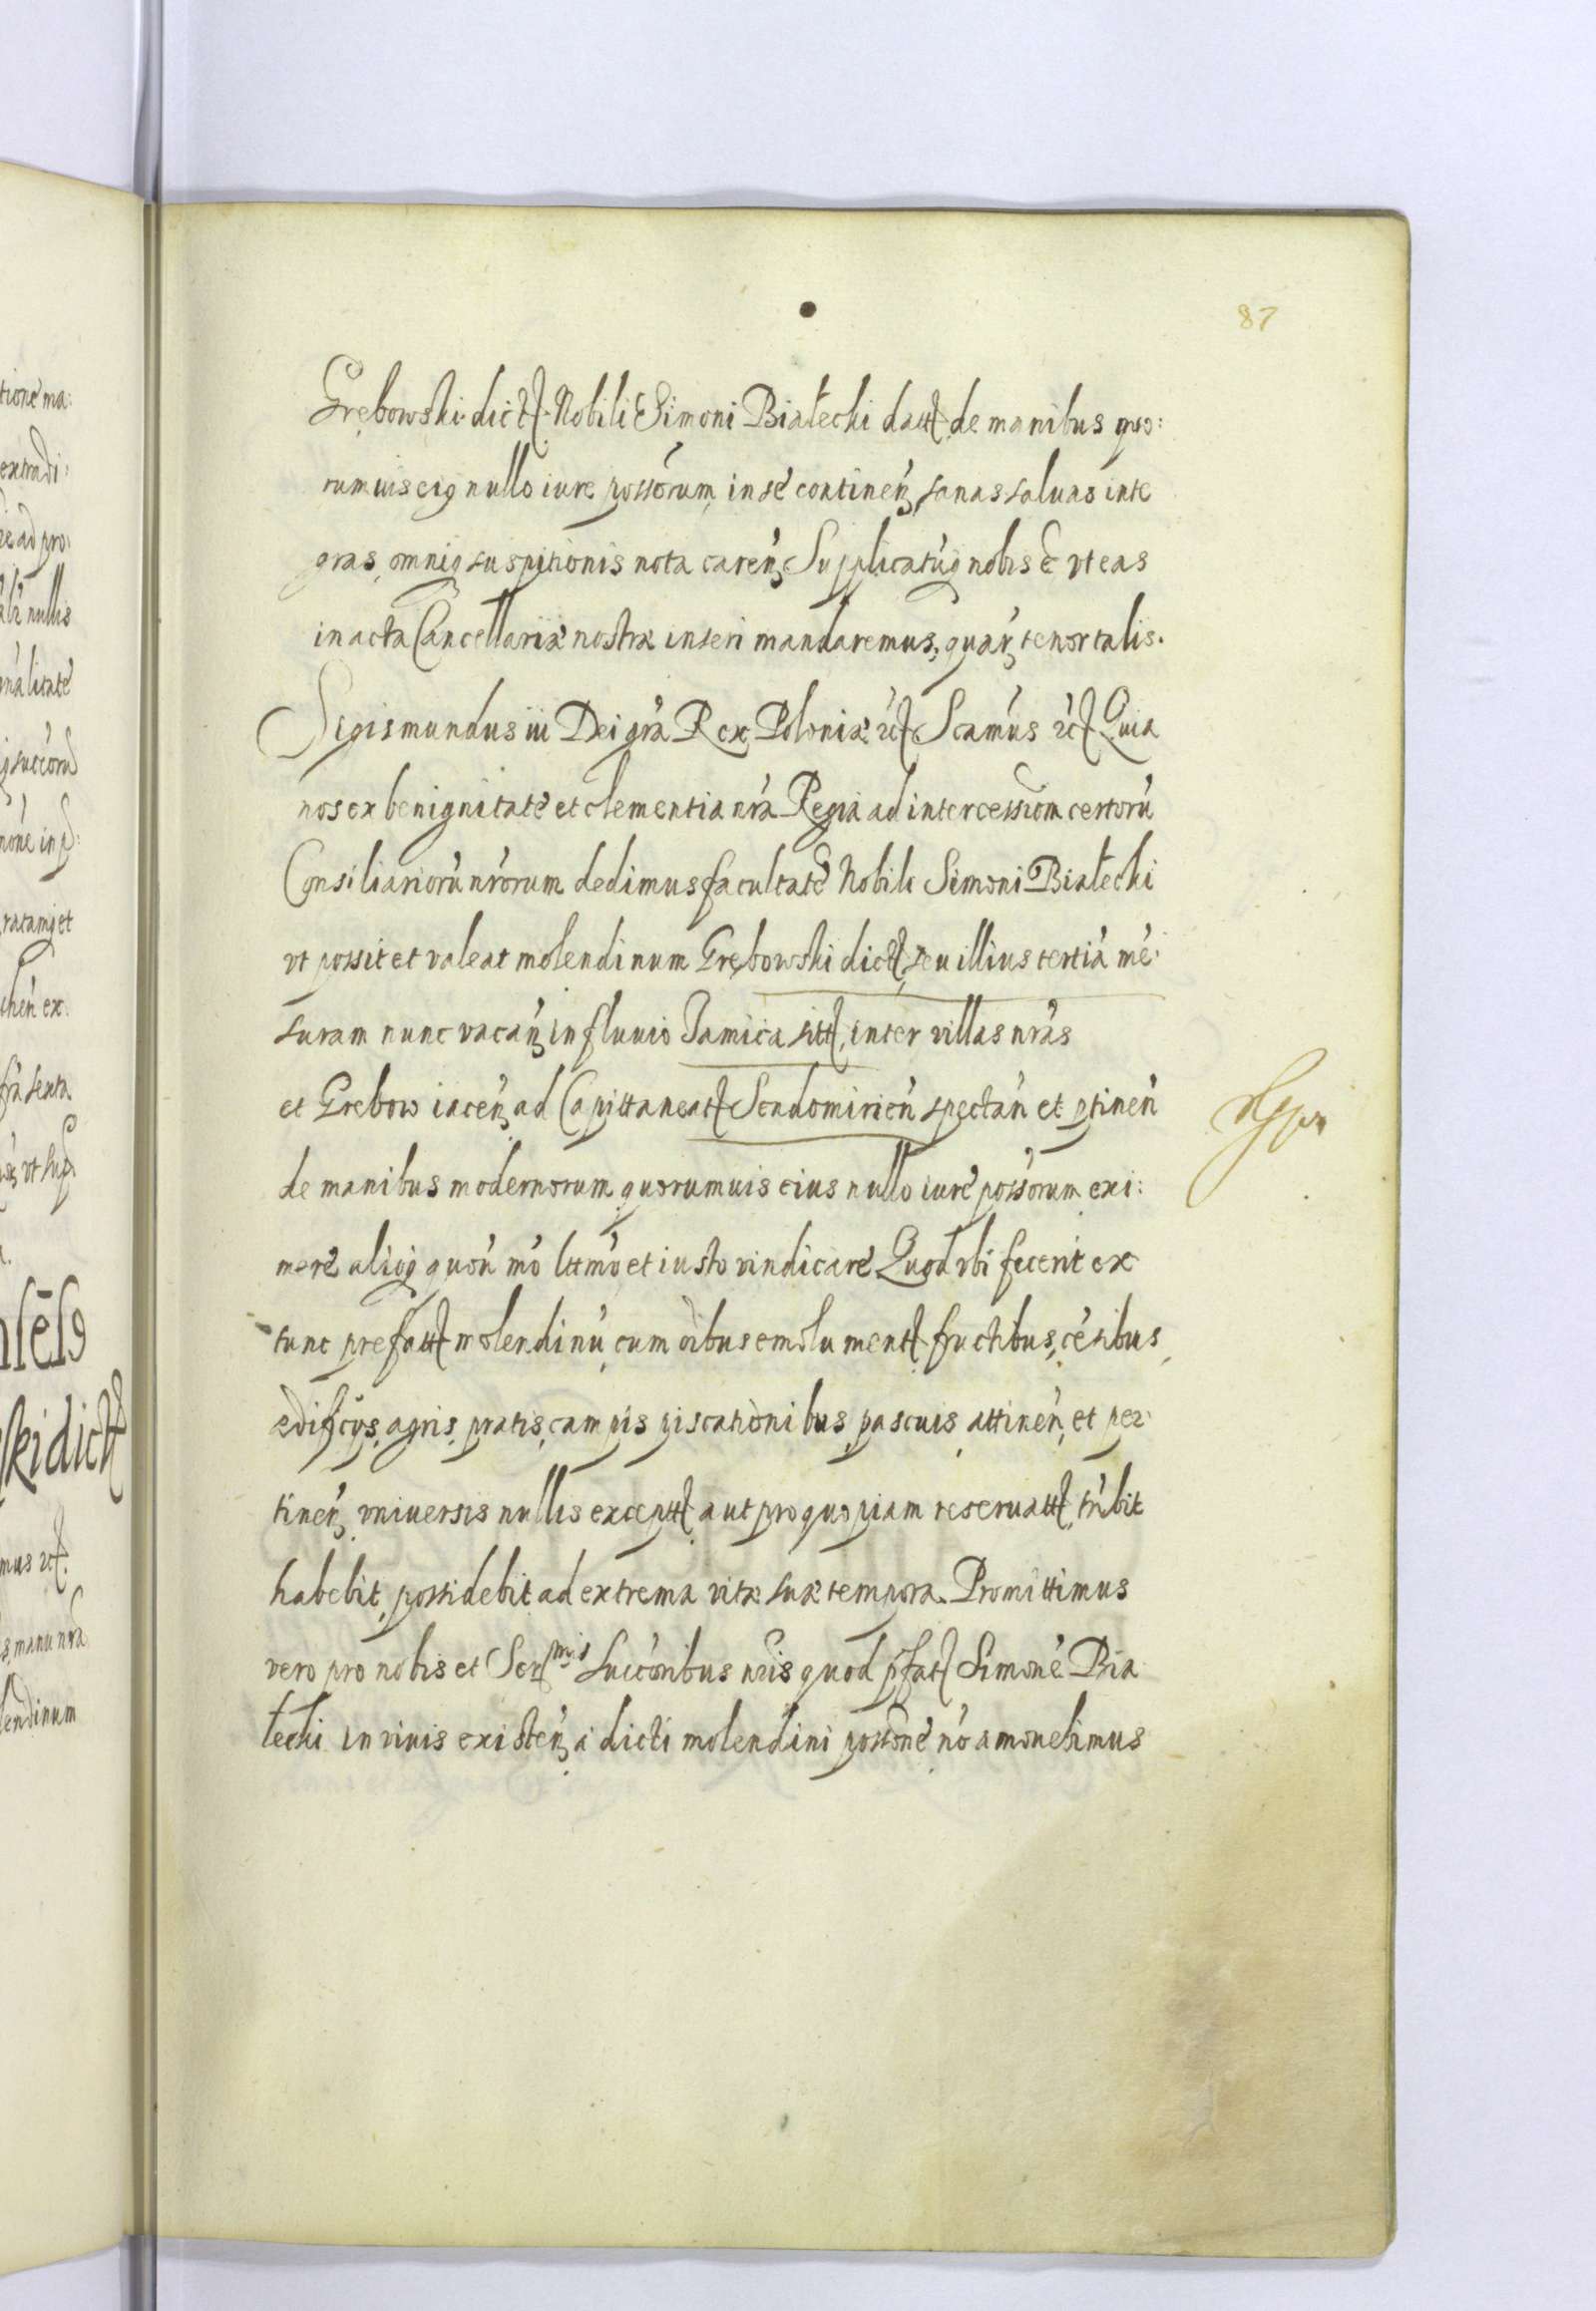 87
Grębowski dictt Nobili Simoni Białecki datt de manibus quo:
rumuis eiq nullo iure possorum in se continen̄ sanas saluas inte
gras, omniq suspitionis nota caren̄ Supplicatuq nobis ē vt eas
in acta Cancellariæ nostræ inseri mandaremus, quar tenor talis.
Sigismundus iii Dei gra Rex Poloniæ ect Scamus ect Quia
nos ex benignitate et clementia nra Regia ad intercessiom certorū
Consiliariorū nrorum dedimus facultatē Nobili Simoni Białecki
vt possit et valeat molendinum Grębowski dictt, seu illius tertia mē:
suram nunc vacan̄ in fluuio Jamica sitt, inter villas nras
et Grebow iacen̄ ad Capittaneatt Sendomirien̄ spectan̄ et ptinen̄
de manibus modernorum quorumuis eius nullo iure possorum exi:
mere alioq quou mō lttmo et iusto vindicare Quod vbi fecerit ex
tunc prefatt molendinū cum oibus emolumentt fructibus, cēsibus
edificys, agris, pratis, campis piscationibus pascuis attinen̄, et per
tinen̄ vniuersis nullis exceptt aut pro quopiam reseruatt, tn̄bit
habebit, possidebit ad extrema vitæ suæ tempora. Promittimus
vero pro nobis et Ser mis succoribus nris quod pfat Simonē Bia
łecki in viuis existen̄ a dicti molendini possone nō amouebimus